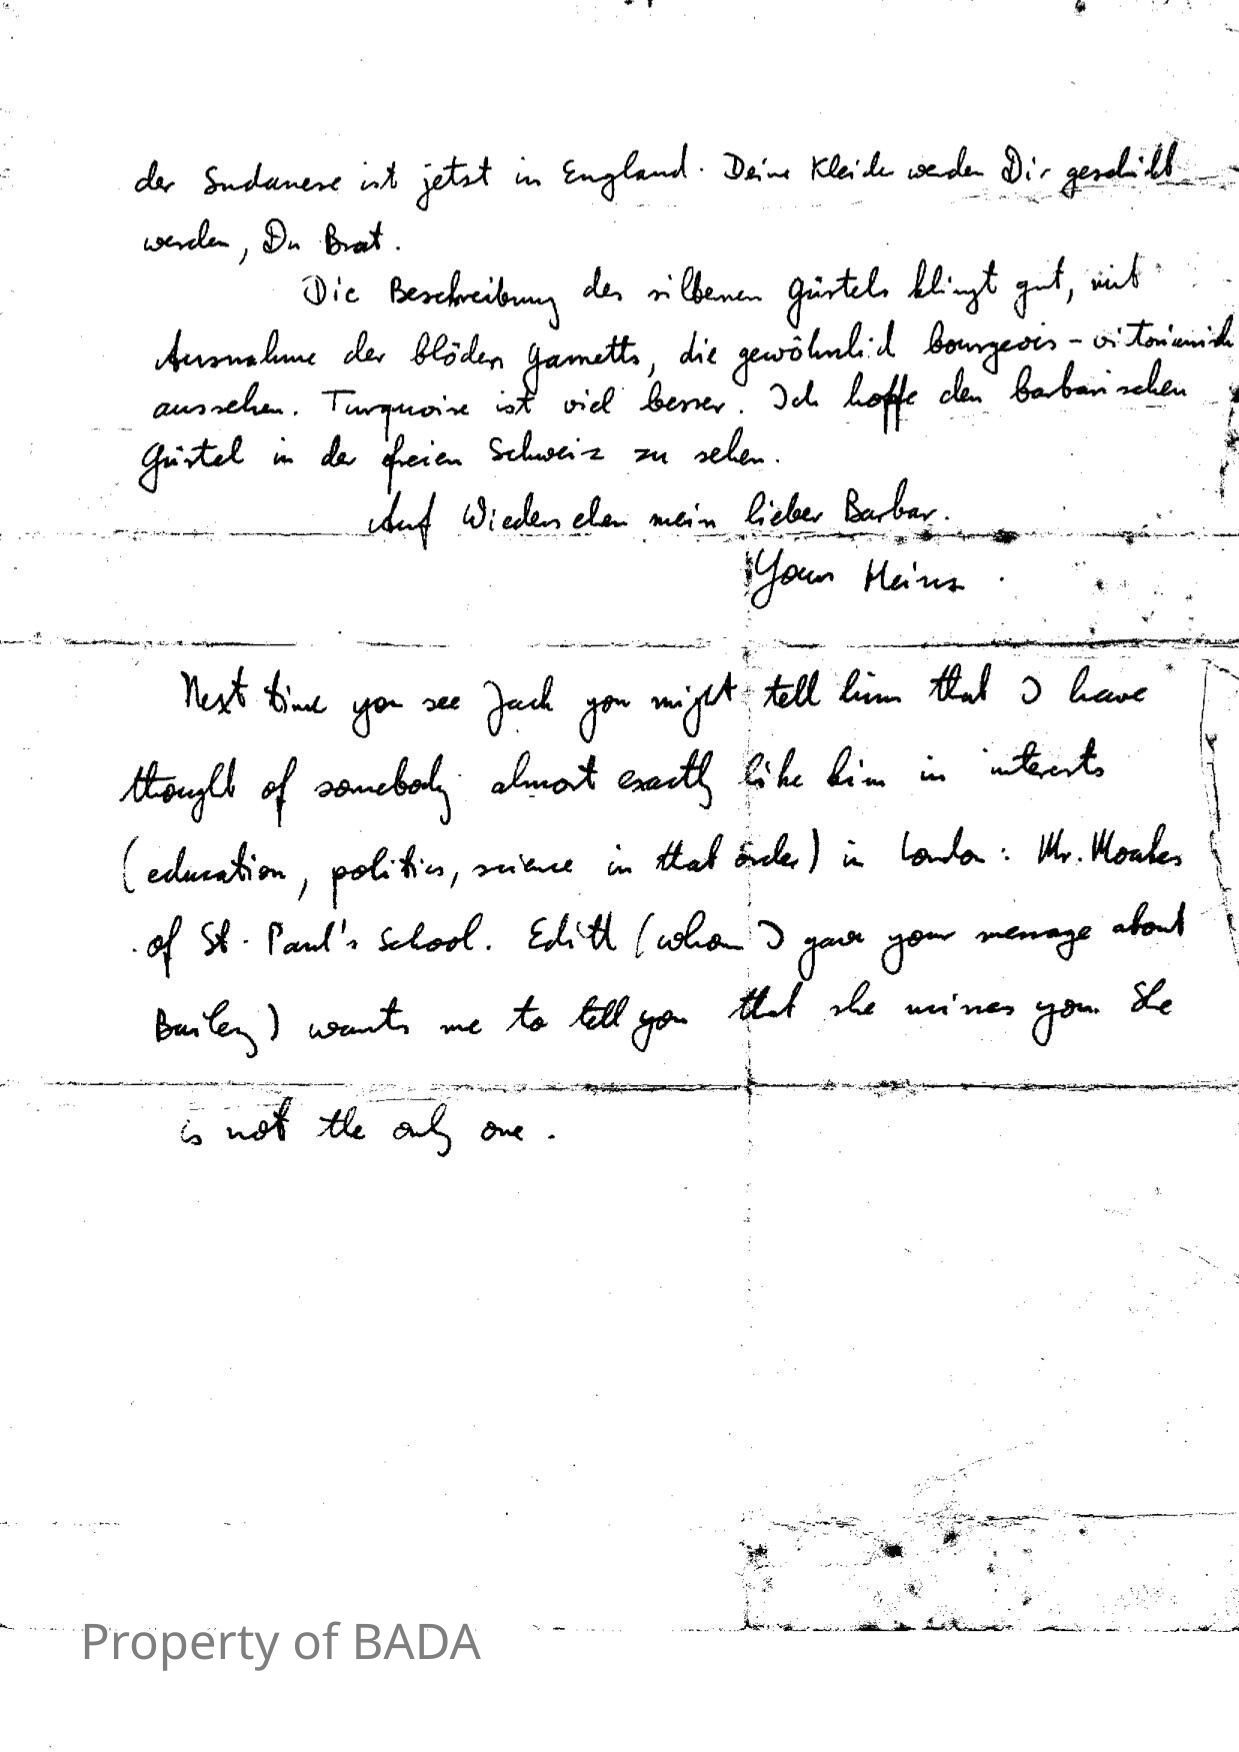 der Sudanese ist jetzt in England. Deine Kleider werden Dir geschickt
werden, Du Brat.
Die Beschreibung des silbernen Gürtels klingt gut, mit
Ausnahme der blöden Garnetts, die gewöhnlich bourgeois-vitorianisch
aussehen. Turquoise ist viel besser. Ich hoffe den barbarischen
Gürtel in der freien Schweiz zu sehen.
Auf Wiedersehen mein lieber Barbar.
Yours Heinz.
Next time you see Jack you might tell him that I have
thought of somebody almost exactly like him in interests
(education, politics, science in that order) in London: Mr. Moakes
of St. Paul's School. Edith (whom I gave your message about
Bailey) wants me to tell you that she misses you. She
is not the only one.
Property of BADA